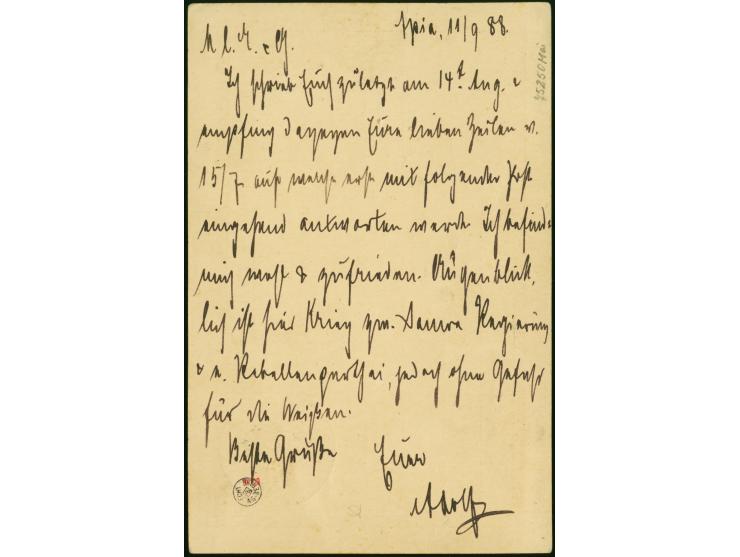 Apia, 11/9 88.
M l. A. & G.
Ich schrieb Euch zuletzt am 14t Aug. &
empfing dagegen Eure lieben Zeilen v.
15/7 auf welche erst mit folgender Post
eingehend antworten werde. Ich befinde
mich wohl & zufrieden. Augenblick-
lich ist hier Krieg zw. Samoa Regierung
& e. Rebellenparthei, jedoch ohne Gefahr
für die Weißen.
Beste Grüße Euer
Adolf